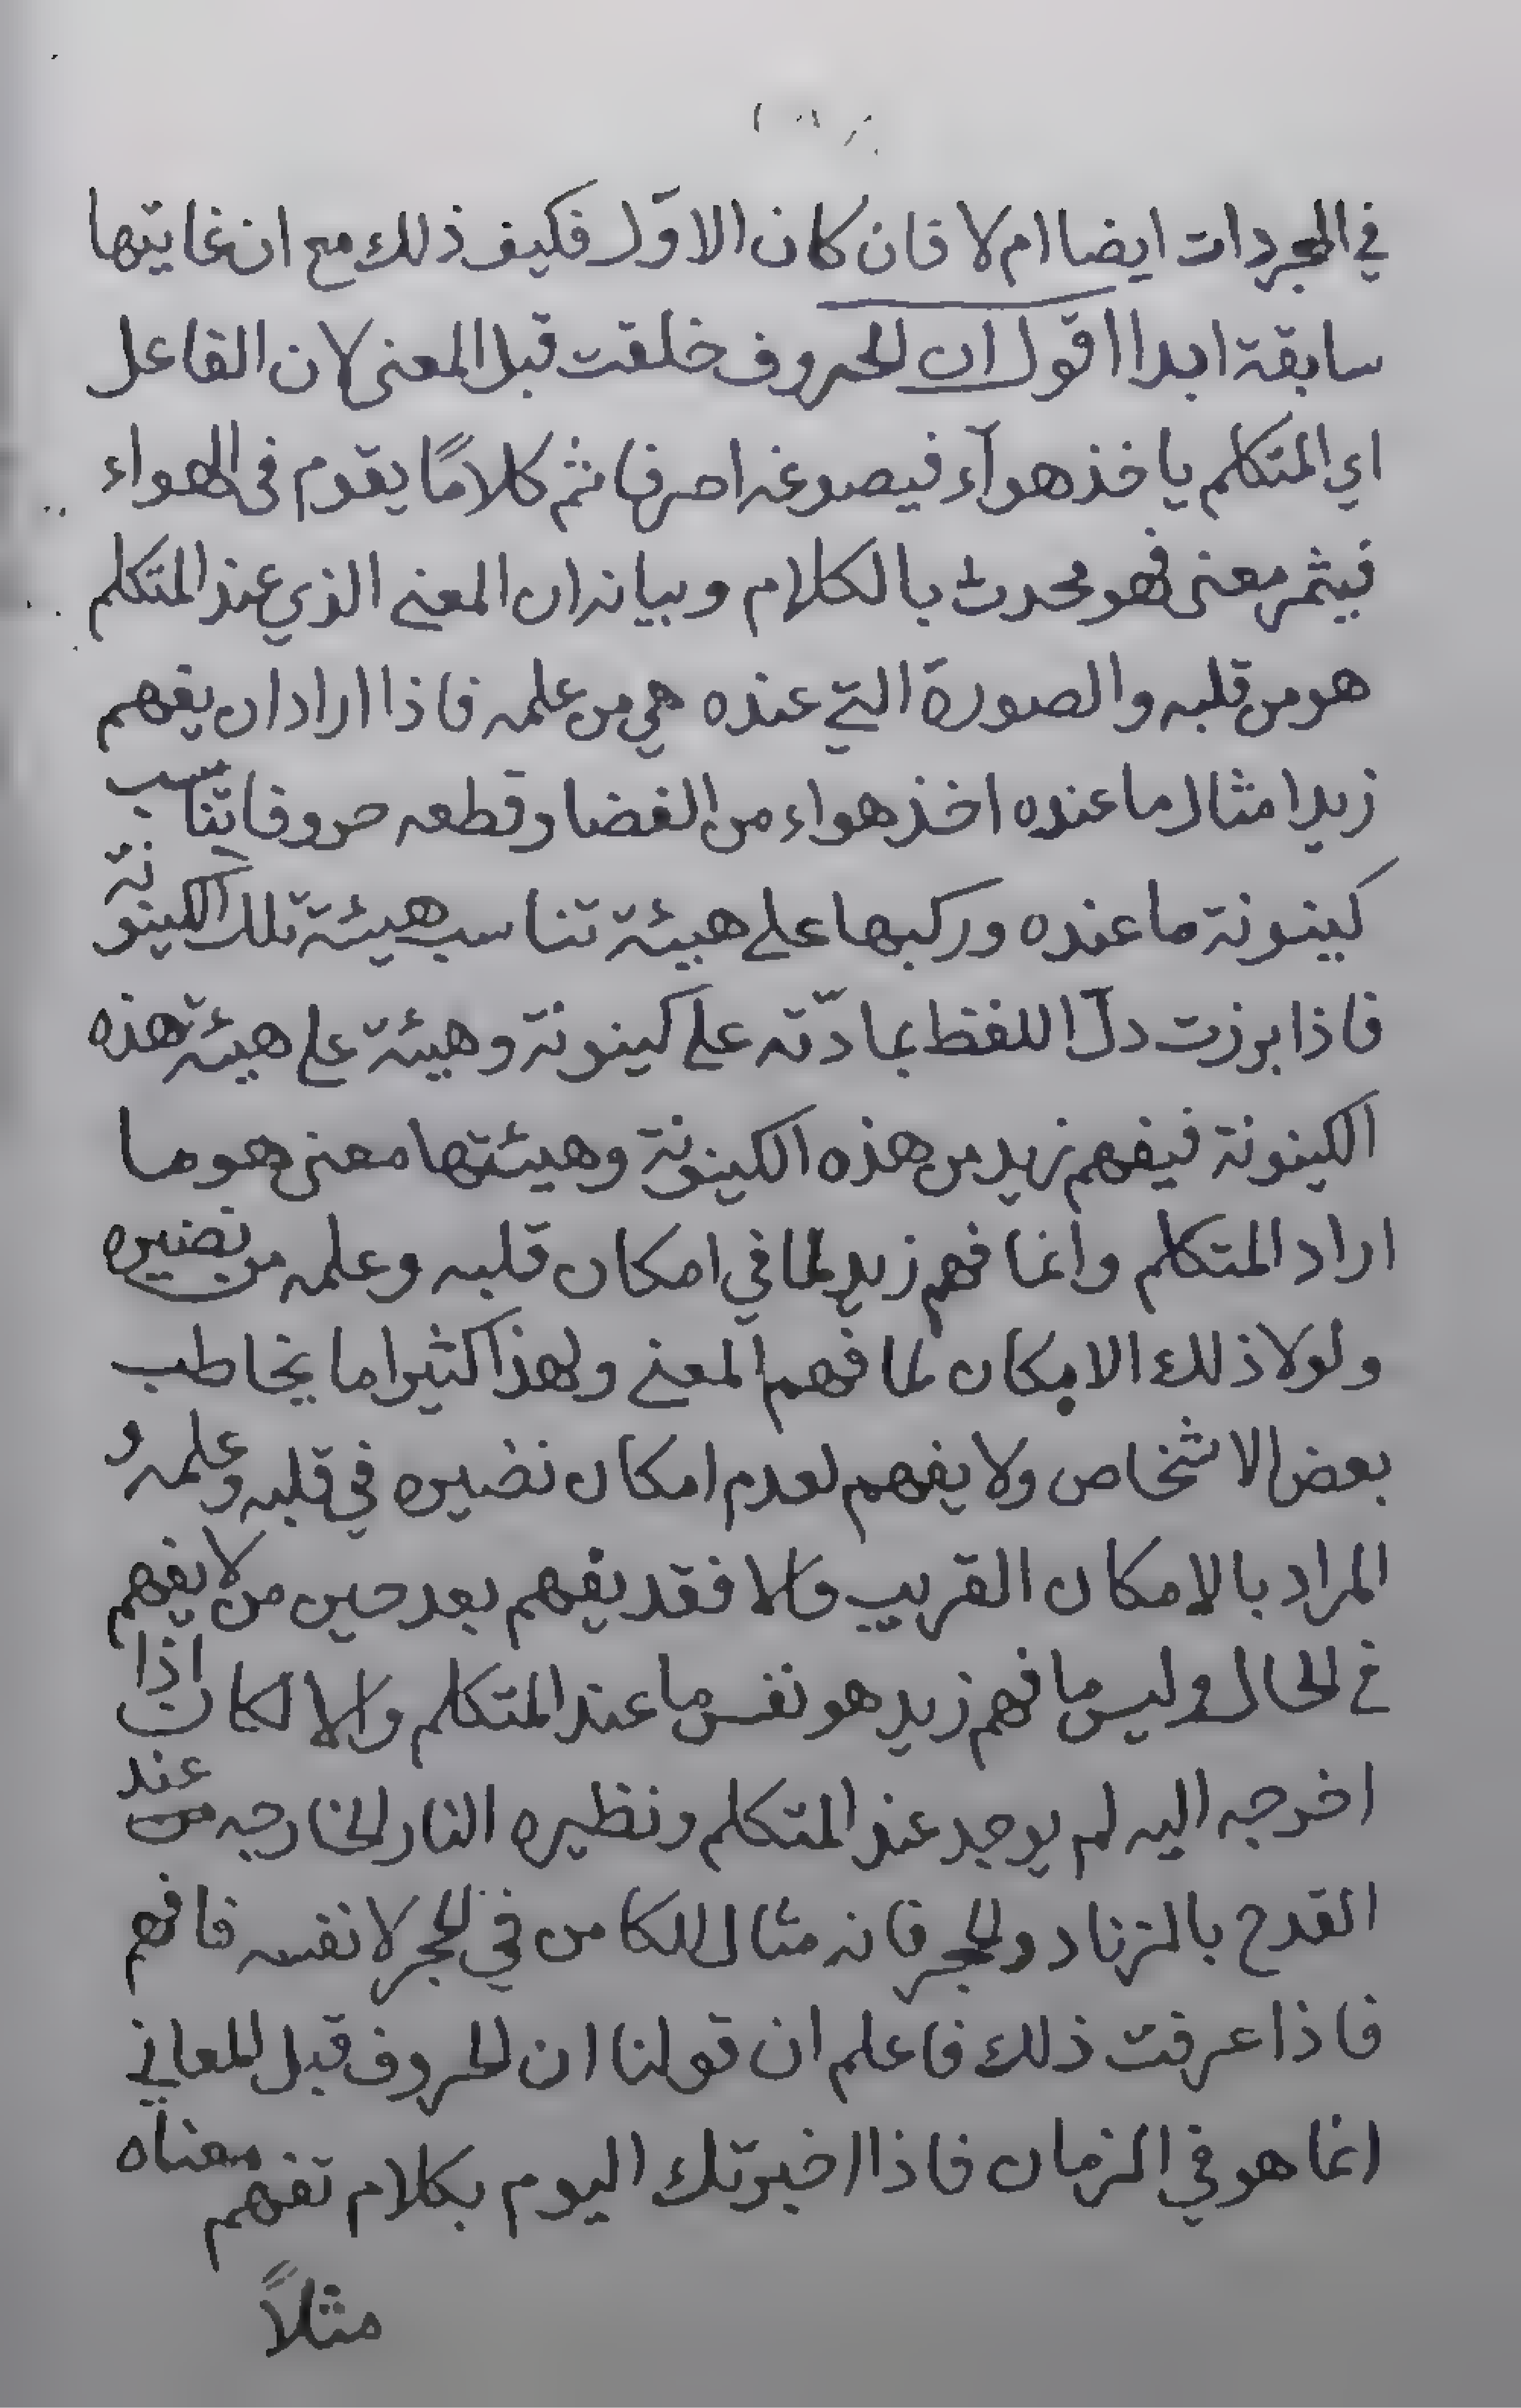 في المجردات ايضا ام لا فان كان الاوّل فكيف ذلك مع ان غايتها
سابقة ابدا اقول ان الحروف خلقت قبل المعنى لان الفاعل
اي المتكلم ياخذ هوآء فيصوغه احرفا ثم كلامًا يقوم في الهواء
فيثمر معنى فهو محدث بالكلام وبيانه ان المعنى الذي عند المتكلم
هو من قلبه والصورة التي عنده هي من علمه فاذا اراد ان يفهم
زيدا مثال ما عنده اخذ هواء من الفضا وقطعه حروفا تناسب
كينونة ما عنده وركبها على هيئة تناسب هيئة تلك الكينونة
فاذا برزت دلّ اللفظ بمادّته على كينونة وهيئة على هيئة هذه
الكينونة فيفهم زيد من هذه الكينونة وهيئتها معنى هو ما
اراد المتكلم وانما فهم زيد لما في امكان قلبه وعلمه من نضيره
ولولا ذلك الامكان لما فهم المعنى ولهذا كثيرا ما يخاطب
بعض الاشخاص ولا يفهم لعدم امكان نضيره في قلبه وعلمه و
المراد بالامكان القريب والا فقد يفهم بعد حين من لا يفهم
في الحال وليس ما فهم زيد هو نفس ما عند المتكلم والا لكان اذا
اخرجه اليه لم يوجد عند المتكلم ونظيره النار الخارجه من عند
القدح بالزناد والحجر فانه مثال للكامن في الحجر لا نفسه فافهم
فاذا عرفت ذلك فاعلم ان قولنا ان الحروف قبل المعاني
انما هو في الزمان فاذا اخبرتك اليوم بكلام تفهم معناه
مثلاً